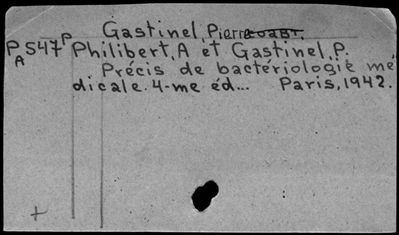 Gastinel, Pierre
P A 547 P Philibert, A et Gastinel, P.
Précis de bactériologie mé
dicale. 4-me éd... Paris, 1942.
+